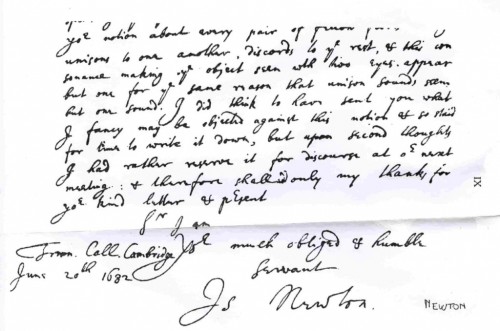 yor notion about every pair of
unisons to one another, discords to ye rest, & this con
sonance making ye object seen wth two eyes appear
but one for ye same reason that unison sounds seem
but one sound. I did think to have sent you what
I fancy may be objected against this notion & so staid
for time to write it down, but upon second thoughts
I had rather reserve it for discourse at or next
meeting: & therefore shall add only my thanks for
yor kind letter & present
Sr I am
Trin. Coll. Cambridge Yor much obliged & humble
June 20th 1682 Servant
Is Newton.
NEWTON
IX